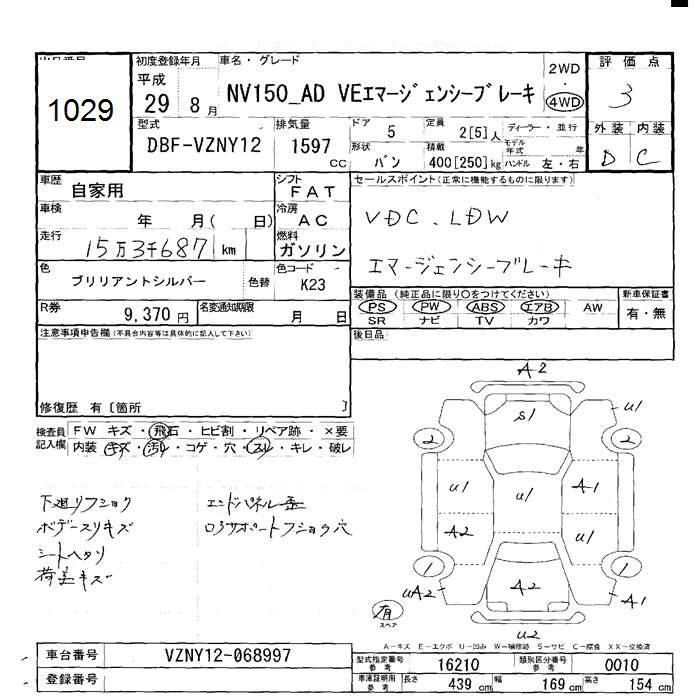 初度登録年月 車名・グレード 評価点
1029
平成 29年 8月
NV150_AD VEエマージェンシーブレーキ
2WD
・
4WD
3
外装 内装
D C
型式 排気量 ドア 5 定員 2[5]人 ディーラー・並行
DBF-VZNY12 1597 CC
形状 バン 積載 400[250]kg モデル年式 年 ハンドル 左・右
車歴 自家用
シフト FAT
セールスポイント(正常に機能するものに限ります)
車検 年 月( 日)
冷房 AC
VDC. LDW
走行 15万3千687 km
燃料 ガソリン
エマージェンシーブレーキ
色 ブリリアントシルバー 色替
色コード K23
R券 9,370円 名変通知期限 月 日
装備品(純正品に限り○をつけてください) 新車保証書
PS PW ABS エアB AW 有・無
SR ナビ TV カワ
注意事項申告欄(不具合内容等は具体的に記入して下さい)
後日品
修復歴 有[箇所 ]
検査員記入欄
FW キズ・飛石・ヒビ割・リペア跡・×要
内装 キズ・汚れ・コゲ・穴・スレ・キレ・破レ
下廻リフショク エンドパネル歪
ボデースリキズ ロアサポートフショク穴
シートヘタリ
荷室キズ
A2
S1 U1
2 2
U1 U1 A1
A2 U1
1 1
UA2 A2 A1
有 スペア
U2
A-キズ E-エクボ U-凹み W-補修跡 S-サビ C-腐食 XX-交換済
車台番号 VZNY12-068997
型式指定番号 参考 16210 類別区分番号 参考 0010
登録番号
車庫証明用 参考 長さ 439cm 幅 169cm 高さ 154cm